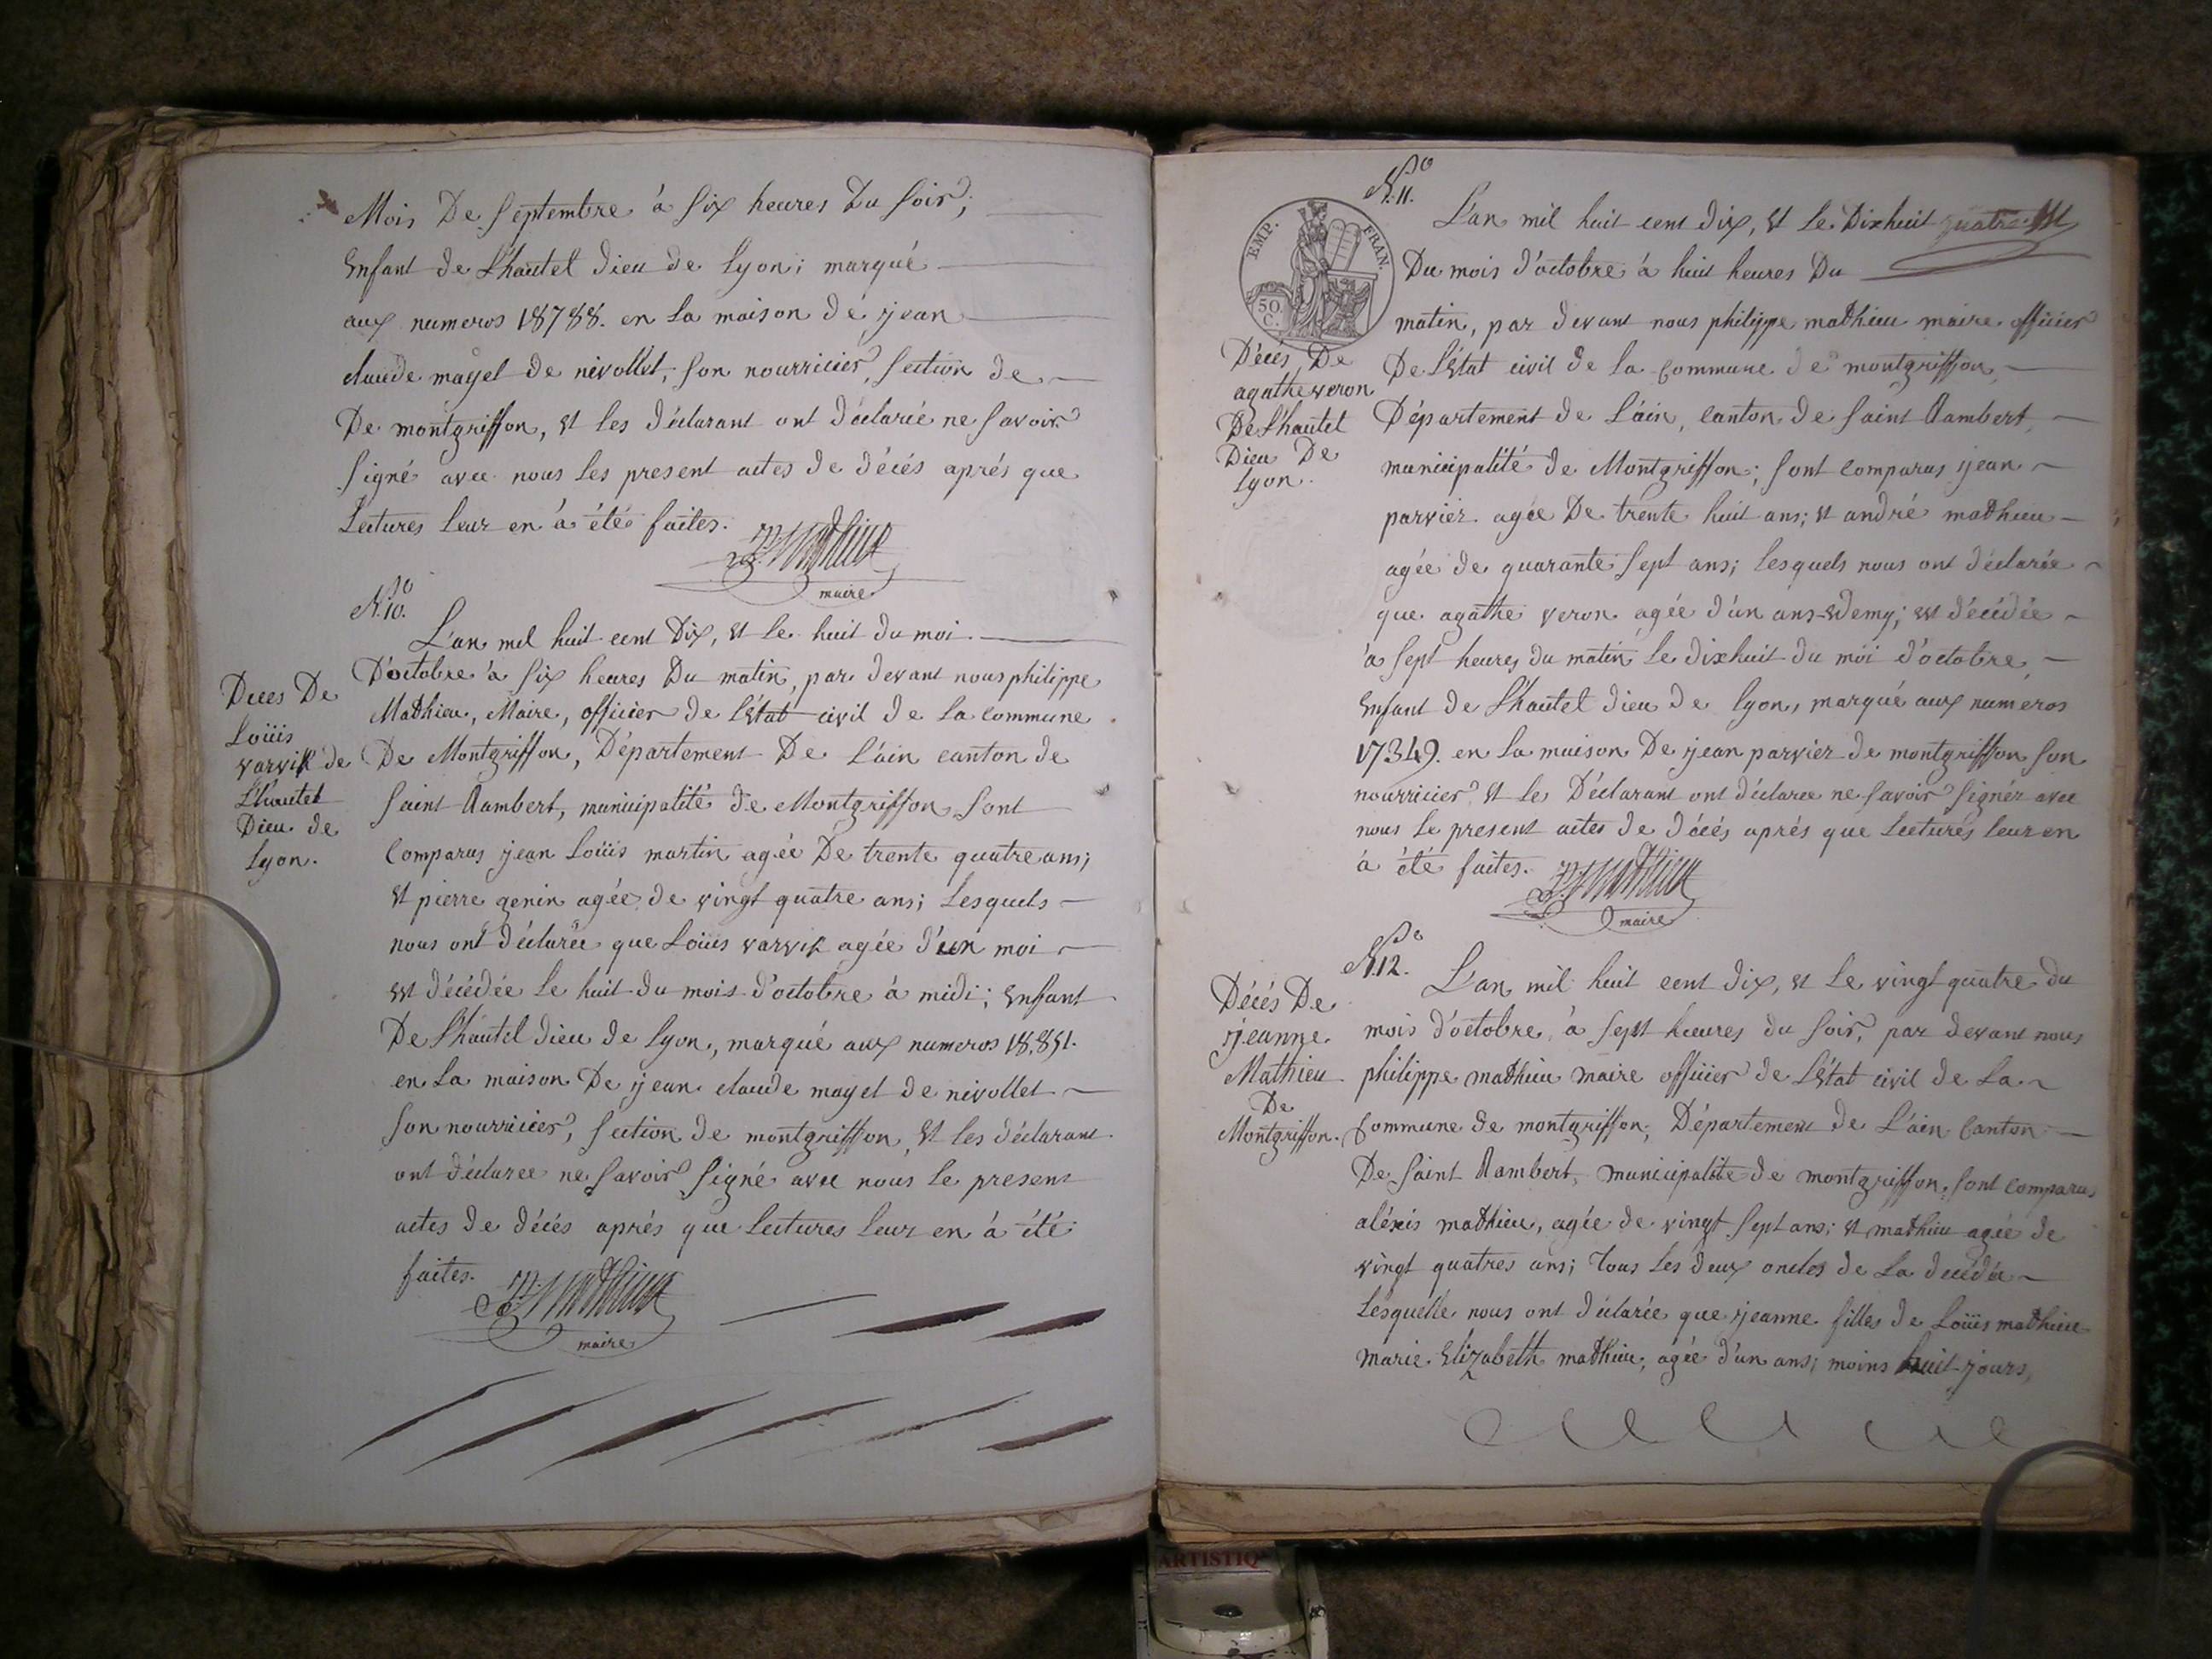 Mois De Septembre à Six heures Du Soir;
Enfant de L'hautel dieu de Lyon; marqué
aux numeros 18788. en la maison de jean
claude mayet de nivollet, son nourricier, Section de
De montgriffon, et les déclarant ont déclarée ne Savoir
Signé avec nous les present actes de décés aprés que
Lectures leur en à été faites.
Mathieu
maire
N.º 10.
L'an mil huit cent Dix, et le huit du moi
D'octobre à Six heures Du matin, par devant nous philippe
Mathieu, Maire, officier de L'état civil de La Commune
De Montgriffon, Département De L'ain canton de
Saint Rambert, municipalité de Montgriffon Sont
Comparus jean Loüis martin agée De trente quatre ans;
et pierre genin agée de vingt quatre ans; Lesquels
nous ont déclarée que Loüis varvik agée d'un moi
est décédée Le huit du mois d'octobre à midi; Enfant
De L'hautel dieu de Lyon, marqué aux numeros 18,851.
en La maison De jean claude mayet de nivollet
Son nourricier, Section de montgriffon, et les déclarant
ont déclaree ne Savoir Signé avec nous le present
actes de décés aprés que Lectures Leur en à été
faites.
Mathieu
maire
Deces De
Loüis
varvik de
L'hautel
Dieu de
Lyon.
EMP. FRAN.
50.
C.
N.º 11.
L'an mil huit cent dix, et le Dixhuit
Du mois d'octobre à huit heures Du
matin, par devant nous philippe mathieu maire officier
De L'état civil de la Commune de montgriffon,
Département de L'ain, canton de Saint Rambert,
municipalité de Montgriffon; Sont Comparus jean
parvier agée De trente huit ans; et andré mathieu
agée de quarante Sept ans; Lesquels nous ont déclarée
que agathe veron agée d'un ans et Demy; est décédée
à Sept heures du matin Le dixhuit du moi d'octobre,
Enfant de L'hautel dieu de Lyon, marqué aux numeros
17349. en la maison De jean parvier de montgriffon Son
nourricier, et le Déclarant ont déclaree ne Savoir Signér avec
nous Le present actes de décés aprés que Lectures leur en
à été faites.
Mathieu
maire
Décés De
agathe veron
De L'hautel
Dieu De
Lyon.
N.º 12.
L'an mil huit cent dix, et Le vingt quatre du
mois d'octobre, à Sept heures du Soir, par devant nous
philippe mathieu maire officier de L'état civil de La
Commune de montgriffon, Département de L'ain Canton
De Saint Rambert, municipalité de montgriffon, Sont Comparus
aléxis mathieu, agée de vingt Sept ans; et mathieu agée de
vingt quatres ans; tous les deux oncles de La decédée
Lesquelle nous ont déclarée que jeanne filles de Loüis mathieu
marie Elizabeth mathieu, agée d'un ans; moins huit jours,
Décés De
jeanne
Mathieu
De
Montgriffon.
ARTISTIQ